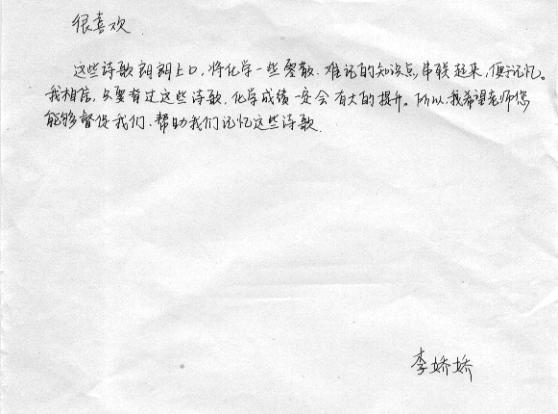 很喜欢
这些诗歌朗朗上口,将化学一些零散、难记的知识点,串联起来,便于记忆。
我相信,只要背过这些诗歌,化学成绩一定会有大的提升。所以,我希望老师您
能够督促我们、帮助我们记忆这些诗歌.
李娇娇